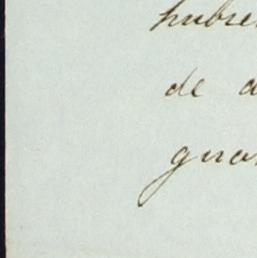 hubre
de a
guar